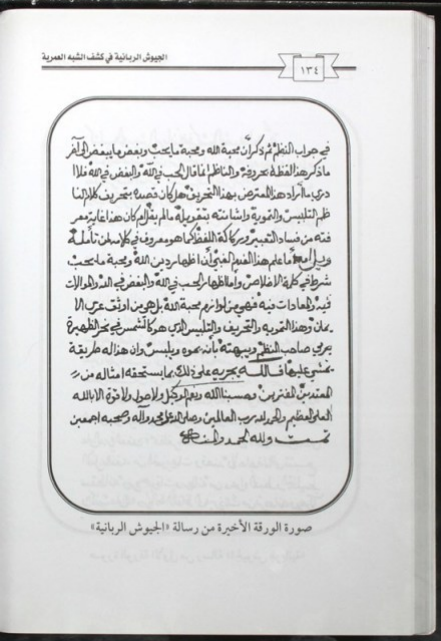 الجيوش الربانية في كشف الشبه العمرية
١٣٤
في جواب النظم ثم ذكر أن محبة الله ومحبة ما يحب وبغض ما يبغض إلى آخر
ما ذكر هذا لفظه بحروفه والناظم إنما قال الحب في الله والبغض في الله فلا ا
دري ما أراد هذا المعترض بهذا التحريف هل كان قصده بتحريف كلام النا
ظم التلبيس والتموية واشانته بتقويله ما لم يقل أم كان هذا غاية معر
فته من فساد التعبير وركاكة اللفظ كما هو معروف في كلامه لمن تأمله
ما علم هذا الفدم الغبي أن إظهار دين الله ومحبة ما يحب
شرط في كلمة الاخلاص وإنما إظهار الحب في الله والبغض في الله والموالات
فيه والمعادات فيه فهي من لوازم محبة الله بل هو من اوثق عرى الا
يمان وهذا التمويه والتحريف والتلبيس الذي هو كالشمس في نحر الظهيرة
يرمي صاحب النظم ويبهته بأنه يموه ويلبس وان هذا له طريقة
يمشي عليها فالله يجزيه على ذلك بما يستحقه امثاله من
المعتدين المفترين وحسبنا الله ونعم الوكيل ولا حول ولا قوة الا بالله
العلي العظيم والحمد لله رب العالمين وصلى الله على محمد وآله وصحبه اجمعين
تمت ولله الحمد والمنة
صورة الورقة الأخيرة من رسالة «الجيوش الربانية»